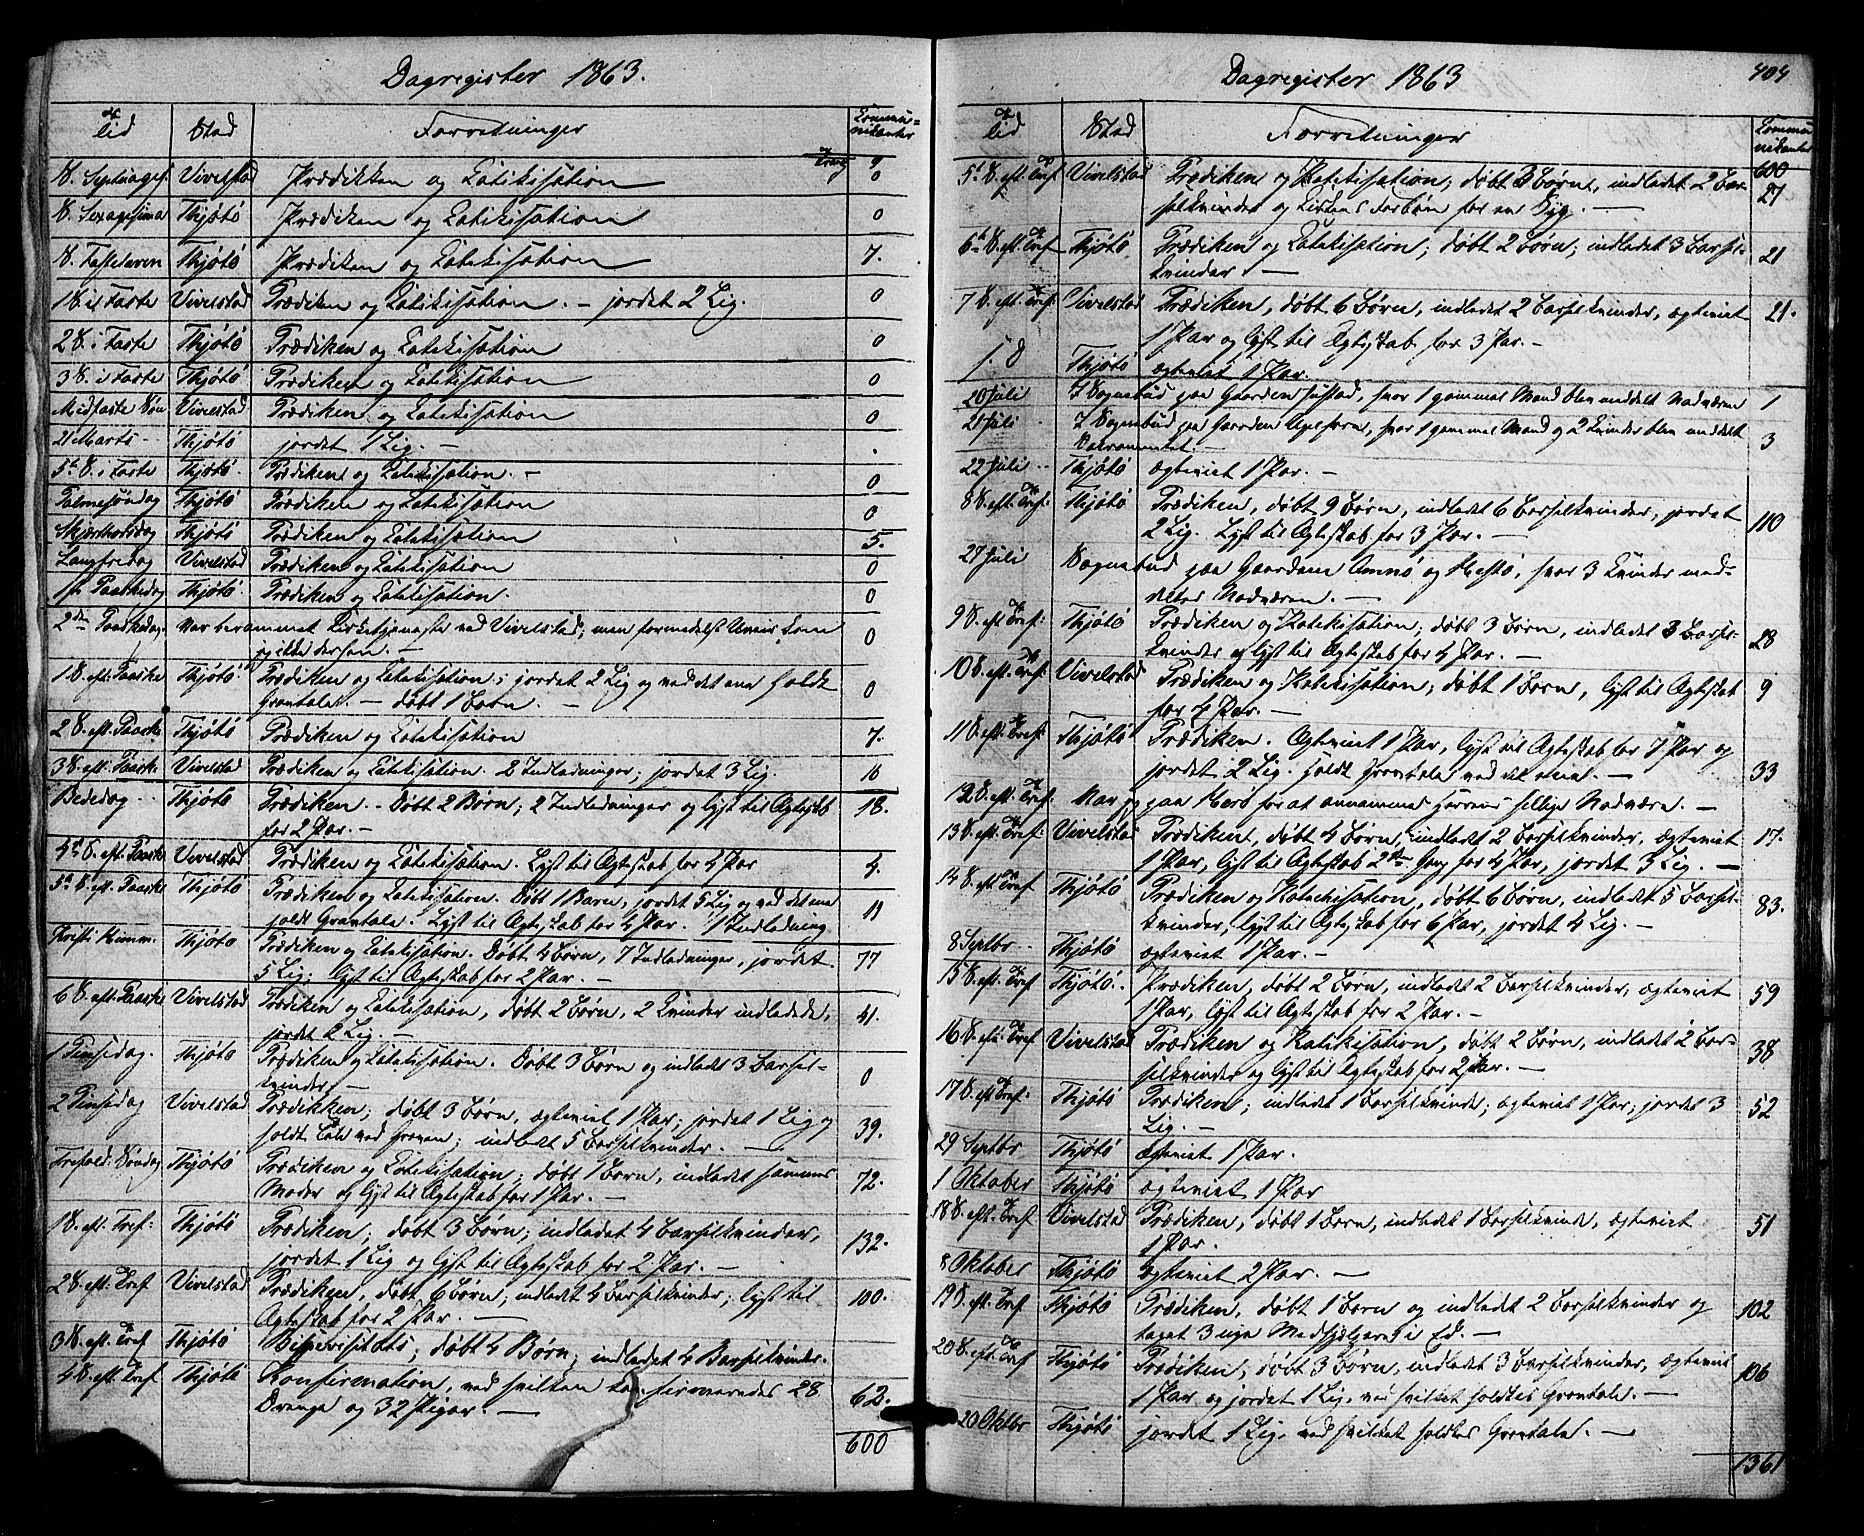 Dagregister 1863.
Tid Sted Forretninger Commu-
nikanter
Transp 9
S. Septuages. Vivelstad Prædikken og Catekisation 0
S. Sexagesima Thjøtö Prædiken og Catekisation 0
S. Fastelaven Thjøtö Prædiken og Catekisation 7.
1 S. i Faste Vivelstad Prædiken og Catekisation. – jordet 2 Lig. 0
2 S. i Faste Thjøtö Prædiken og Catekisation 0
3 S. i Faste Thjøtö Prædiken og Catekisation 0
Midfaste Søn Vivelstad Prædiken og Catekisation 0
21 Marts Thjøtö jordet 1 Lig. –
5te S. i Faste Thjøtö Prædiken og Catekisation. – 0
Palmesøndag Thjøtö Prædiken og Catekisation 0
Skjærthorsdag Thjøtö Prædiken og Catekisation 5.
Langfredag Vivelstad Prædiken og Catekisation 0
1ste Paaskedag Thjøtö Prædiken og Catekisation. 0
2den Paaskedag var berammet Kirketjeneste ved Vivelstad; men formedelst Uveir kom 0
jeg ikke dersen. –
1 S. eft. Paaske Thjøtö Prædiken og Catekisation; jordet 2 Lig og ved det ene holdt 0
Gravtale. – døbt 1 Barn. –
2 S. eft. Paaske Thjøtö Prædiken og Catekisation 7.
3 S. eft. Paaske Vivelstad Prædiken og Catekisation. 2 Indledninger; jordet 3 Lig. 16
Bededag Thjøtö Prædiken. Døbt 2 Børn; 2 Indledninger og lyst til Ægteskb 18.
for 2 Par. –
4de S. eft. Paaske Vivelstad Prædiken og Catekisation. Lyst til Ægteskab for 4 Par 4.
5te S. eft. Paaske Thjøtö Prædiken og Catekisation. Døbt 1 Barn, jordet 5 Lig og ved det ene 11
holdt Gravtale. Lyst til Ægteskab for 4 Par. 1 Indledning
Kristi Himm. Thjøtö Prædiken og Catekisation. Døbt 4 Børn, 7 Indledninger, jordet 77
5 Lig; lyst til Ægteskab for 2 Par. –
6 S. eft. Paaske Vivelstad Prædiken og Catekisation, døbt 2 Børn, 2 Kvinder indledede, 41.
jordet 2 Lig. –
1 Pinsedag. Thjøtö Prædiken og Catekisation. Døbt 3 Børn og indledet 3 Barsel- 0
kvinder –
2 Pinsedag Vivelstad Prædikken; døbt 3 Børn, ægteviet 1 Par; jordet 1 Lig og 39.
holdt Tale ved Graven; indledet 5 Barselkvinder. –
Trefold. Søndag Thjøtö Prædiken og Catekisation; døbt 1 Barn, indledet sammes 72.
Moder og lyst til Ægteskab for 1 Par. –
1 S. eft. Tref: Thjøtö Prædiken; døbt 3 Børn; indledet 4 Barselkvinder, 132.
jordet 1 Lig og lyst til Ægteskab for 2 Par. –
2 S. eft. Tref Vivelstad Prædiken, døbt 6 Børn; indledet 4 Barselkvinder; lyst til 100.
Ægteskab for 2 Par. –
3 S. eft. Tref Thjøtö Bispevisitats; døbt 4 Børn; indledet 4 Barselkvinder.
4 S. eft. Tref Thjøtö Konfirmation, ved hvilken konfirmeredes 28 62.
Drenge og 32 Piger. –
600
Dagregister 1863
404
Tid Sted Forretninger Commu
nikanter
600
5te S. eft. Tref Vivelstad Prædiken og Katekisation; døbt 3 Børn, indledet 2 Bar- 27
selkvinder og Kirkens Forbøn for en Syg. –
6te S. eft. Tref Thjøtö Prædiken og Catekisation; døbt 2 Børn; indledet 3 Barsel- 21
kvinder. –
7 S. eft. Tref: Vivelstad Prædiken, døbt 6 Børn, indledet 2 Barselkvinder, ægteviet 21.
1 Par og lyst til Ægteskab for 3 Par. –
s. D Thjøtö ægteviet 1 Par.
20 Juli I Sognebud paa Gaarden, hvor 1 gammel Mand blev meddelt Nadveren 1
21 Juli I Sognebud paa Gaarden, hvor 1 gammel Mand og 2 Kvinder blev meddelt 3
Sakramentet. –
22 Juli Thjøtö ægteviet 1 Par. –
8 S. eft. Tref: Thjøtö Prædiken, døbt 9 Børn, indledet 6 Barselkvinder, jordet 110
2 Lig. Lyst til Ægteskab for 3 Par. –
27 Juli Sognebud paa Gaardene Omnø og Hestø, hvor 3 Kvinder med-
deltes Nadveren. –
9 S. eft. Tref: Thjøtö Prædiken og Katekisation; døbt 3 Børn, indledet 3 Barsel- 28
kvinder og lyst til Ægteskab for 4 Par. –
10 S. eft. Tref: Vivelstad Prædiken og Katekisation; døbt 1 Barn, lyst til Ægteskab 9
for 4 Par. –
11 S. eft. Tref: Thjøtö Prædiken. Ægteviet 1 Par, lyst til Ægteskab for 7 Par og 33
jordet 2 Lig. holdt Gravtale ved det ene. –
12 S. eft. Tref: Var jeg paa Herø for at annamme Herrens hellige Nadvere. –
13 S. eft. Tref: Vivelstad Prædiken, døbt 4 Børn, indledet 2 Barselkvinder, ægteviet 17.
1 Par, lyst til Ægteskab 2den Gang for 4 Par, jordet 3 Lig. –
14 S. eft. Tref Thjøtö Prædiken og Katechisation, døbt 6 Børn, indledet 5 Barsel- 83.
kvinder, lyst til Ægteskab for 6 Par, jordet 4 Lig. –
8 Septbr Thjøtö ægteviet 1 Par. –
15 S. eft. Tref Thjøtö. Prædiken, døbt 2 Børn, indledet 2 Barselkvinder, ægteviet 59
1 Par, lyst til Ægteskab for 2 Par. –
16 S. eft. Tref Vivelstad Prædiken og Katekisation, døbt 2 Børn, indledet 2 Bar- 38
selkvinder og lyst til Ægteskab for 2 Par. –
17 S. eft. Tref: Thjøtö Prædiken; indledet 1 Barselkvinde; ægteviet 1 Par; jordet 3 52
Lig. –
29 Septbr Thjøtö ægteviet 1 Par.
1 Oktober Thjøtö ægteviet 1 Par
18 S. eft. Tref Vivelstad Prædiken, døbt 1 Barn, indledt 1 Barselkvinde, ægteviet 51
1 Par.
8 Oktober Thjøtö ægteviet 2 Par. –
19 S. eft. Tref Thjøtö Prædiken, døbt 1 Barn og indledet 2 Barselkvinder og 102
taget 3 nye Medhjælpere i Ed. –
20 S. eft. Tref Thjøtö Prædiken; døbt 3 Børn, indledet 3 Barselkvinder, ægteviet 106
1 Par og jordet 1 Lig, ved hvilket holdtes Gravtale. –
20 Oktbr Thjøtö jordet 1 Lig, ved hvilket holdtes Gravtale. –
1361